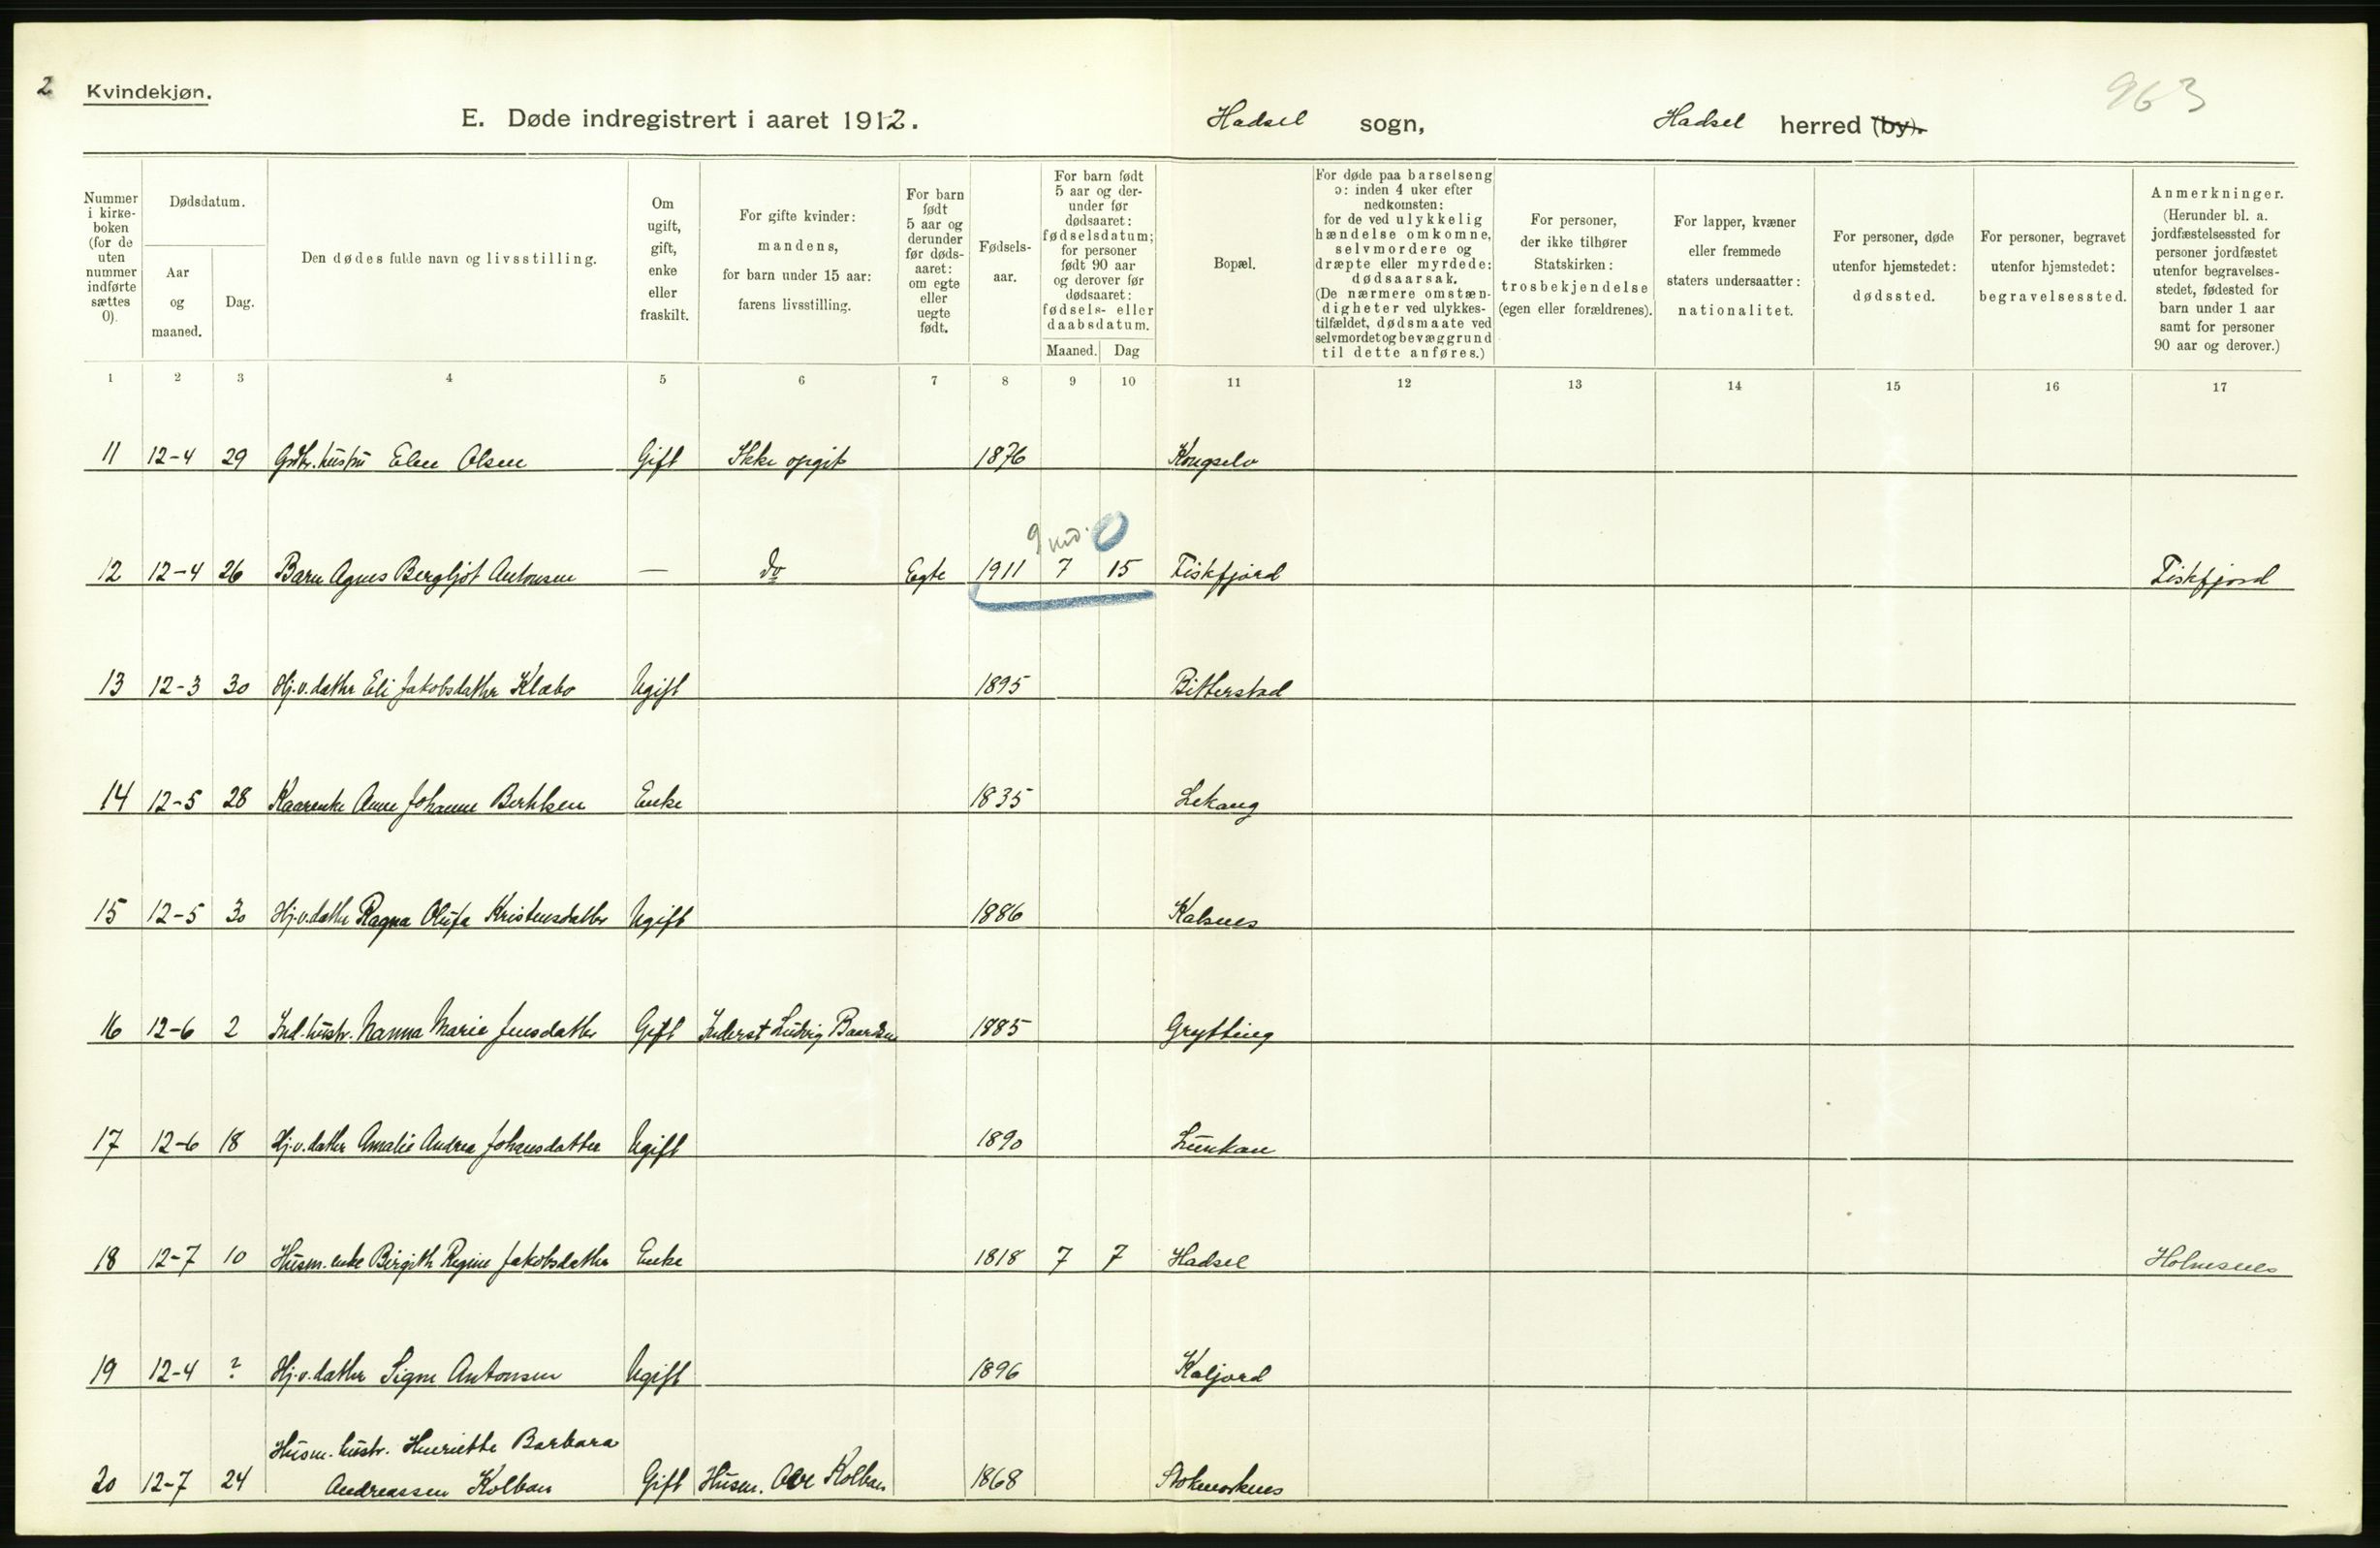 2
Kvindekjøn.
E. Døde indregistrert i aaret 1912.
Hadsel sogn,
Hadsel herred (by).
963
Nummer i kirke-boken (for de uten nummer indførte sættes 0).
Dødsdatum.
Aar og maaned.
Dag.
Den dødes fulde navn og livsstilling.
Om ugift, gift, enke eller fraskilt.
For gifte kvinder: mandens, for barn under 15 aar: farens livsstilling.
For barn født 5 aar og derunder før døds-aaret: om egte eller uegte født.
Fødsels-aar.
For barn født 5 aar og der-under før dødsaaret: fødselsdatum; for personer født 90 aar og derover før dødsaaret: fødsels- eller daabsdatum.
Maaned. Dag
Bopæl.
For døde paa barselseng ɔ: inden 4 uker efter nedkomsten: for de ved ulykkelig hændelse omkomne, selvmordere og dræpte eller myrdede: dødsaarsak. (De nærmere omstæn-digheter ved ulykkes-tilfældet, dødsmaate ved selvmordet og bevæggrund til dette anføres.)
For personer, der ikke tilhører Statskirken: trosbekjendelse (egen eller forældrenes).
For lapper, kvæner eller fremmede staters undersaatter: nationalitet.
For personer, døde utenfor hjemstedet: dødssted.
For personer, begravet utenfor hjemstedet: begravelsessted.
Anmerkninger. (Herunder bl. a. jordfæstelsessted for personer jordfæstet utenfor begravelses-stedet, fødested for barn under 1 aar samt for personer 90 aar og derover.)
1 2 3 4 5 6 7 8 9 10 11 12 13 14 15 16 17
11 12-4 29 Grdbr. hustru Elen Olsen Gift Ikke opgit 1876 Kongselv
9 md. 0
12 12-4 26 Barn Agnes Bergljot Antonsen — do Egte 1911 7 15 Fiskfjord Fiskfjord
13 12-3 30 Hj.v. datter Eli Jakobsdatter Klæbo Ugift 1895 Bitterstad
14 12-5 28 Kaarenke Anne Johanne Berthsen Enke 1835 Lekang
15 12-5 30 Hj.v. datter Ragna Olufa Kristensdatter Ugift 1886 Kalsnes
16 12-6 2 Ind. hustr. Nanna Marie Jensdatter Gift Inderst Ludvig Baardsen 1885 Grytting
17 12-6 18 Hj.v. datter Amalie Andrea Johansdatter Ugift 1890 Lunkan
18 12-7 10 Husm. enke Birgith Regine Jakobsdatter Enke 1818 7 7 Hadsel Holmsnes
19 12-4 ? Hj.v. datter Signe Antonsen Ugift 1896 Kaljord
Husm. hustr. Henriette Barbara
20 12-7 24 Andreassen Kolban Gift Husm. Ole Kolban 1868 Stokmarknes